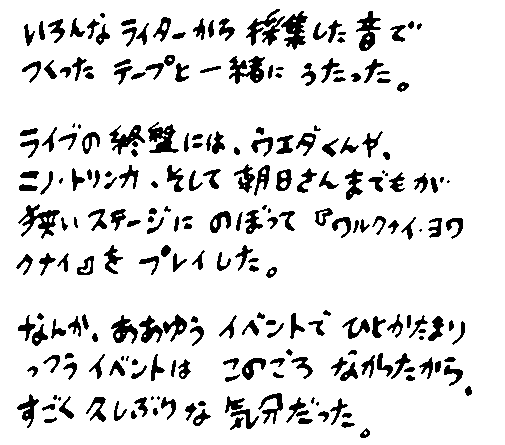 いろんなライターから採集した音で
つくったテープと一緒にうたった。
ライブの終盤には、ウエダくんや、
ニノ・トリンカ、そして朝日さんまでもが
狭いステージにのぼって『ワルクナイ・ヨワ
クナイ』をプレイした。
なんか、ああゆうイベントでひとかたまり
っつうイベントはこのごろなかったから、
すごく久しぶりな気分だった。